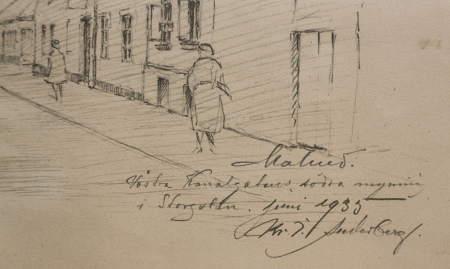 Malmö.
Västra Kanalgatans södra mynning
i Storgatan. Juni 1935